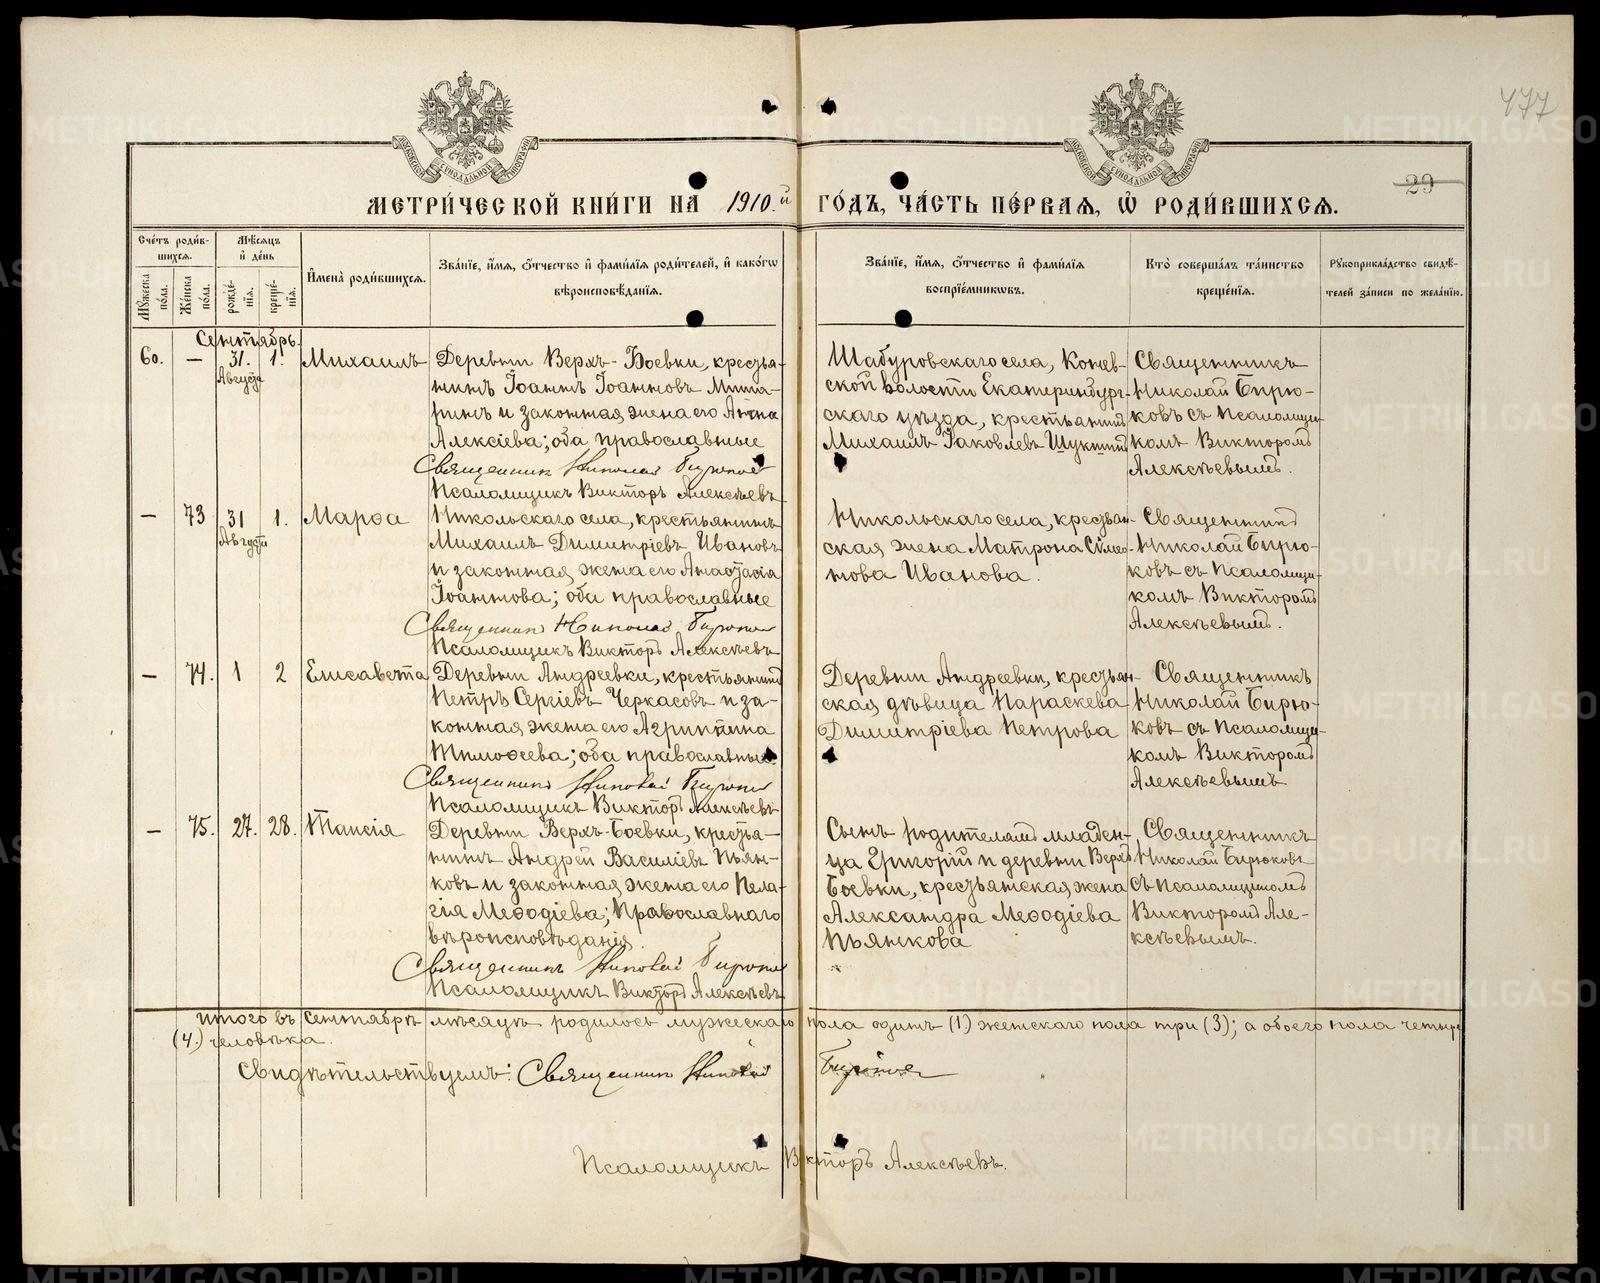 477
29
МЕТРИ́ЧЕСКОЙ КНИ́ГИ НА 1910.й ГО́ДЪ, ЧА́СТЬ ПЕ́РВАЯ, Ѡ҆ РОДИ́ВШИХСЯ.
Сче́тъ роди́вшихся.
Му́жеска по́ла.
Же́нска по́ла.
Мѣ́сяцъ и҆ де́нь
рожде́нїя.
креще́нїя.
И҆мена̀ роди́вшихся.
Зва́нїе, и҆́мя, ѻ҆́тчество и҆ фами́лїя роди́телей, и҆ како́гѡ
вѣроисповѣ́данїя.
Зва́нїе, и҆́мя, ѻ҆́тчество и҆ фами́лїя
воспрїе́мникѡвъ.
Кто̀ соверша́лъ та́инство
креще́нїя.
Рꙋкоприкла́дство свидѣ́-
телей за́писи по жела́нїю.
Сентябрь.
60. — 31. Августа 1. Михаилъ
Деревни Верхъ-Боевки, крестья-
нинъ Іоаннъ Іоанновъ
и законная жена его Анна
Алексіева; оба православные
Священник Николай Бирюков
Псаломщикъ Викторъ Алексѣевъ
Шабуровскаго села, Конев-
ской волости Екатеринбург-
скаго уѣзда, крестьянинъ
Михаилъ Іаковлевъ Щукинъ
Священникъ
Николай Бирю-
ковъ съ псаломщи-
комъ Викторомъ
Алексѣевымъ.
— 73 31 Августа 1. Марѳа
Никольскаго села, крестьянинъ
Михаилъ Димитріевъ Ивановъ
и законная жена его Анастасія
Іоаннова; оба православные
Священникъ Николай Бирюков
Псаломщикъ Викторъ Алексѣевъ
Никольскаго села, крестьян-
ская жена Матрона Сѵмео-
нова Иванова.
Священникъ
Николай Бирю-
ковъ съ псаломщи-
комъ Викторомъ
Алексѣевымъ.
— 74. 1 2 Елисавета
Деревни Андреевки, крестьянинъ
Петръ Сергіевъ Черкасовъ и за-
конная жена его Агриппина
Тимоѳеева; оба православные.
Священникъ Николай Бирюков
Псаломщикъ Викторъ Алексѣевъ
Деревни Андреевки, крестьян-
ская дѣвица Параскева
Димитріева Петрова
Священникъ
Николай Бирю-
ковъ съ псаломщи-
комъ Викторомъ
Алексѣевымъ
— 75. 27. 28. Таисія
Деревни Верхъ-Боевки, крестья-
нинъ Андрей Василіевъ Пьян-
ковъ и законная жена его Пела-
гія Меѳодіева; православнаго
вѣроисповѣданія.
Священникъ Николай Бирюков
Псаломщикъ Викторъ Алексѣевъ
Сынъ родителямъ младен-
ца Григорій и деревни Верхъ
Боевки, крестьянская жена
Александра Меѳодіева
Пьянкова
Священникъ
Николай Бирюковъ
съ псаломщикомъ
Викторомъ Але-
ксѣевымъ.
Итого въ сентябрѣ мѣсяцѣ родилось мужескаго пола одинъ (1) женскаго пола три (3); а обоего пола четыре
(4.) человѣка.
Свидѣтельствуемъ: Священник Николай Бирюков
Псаломщикъ Викторъ Алексѣевъ.
METRIKI.GASO-URAL.RU